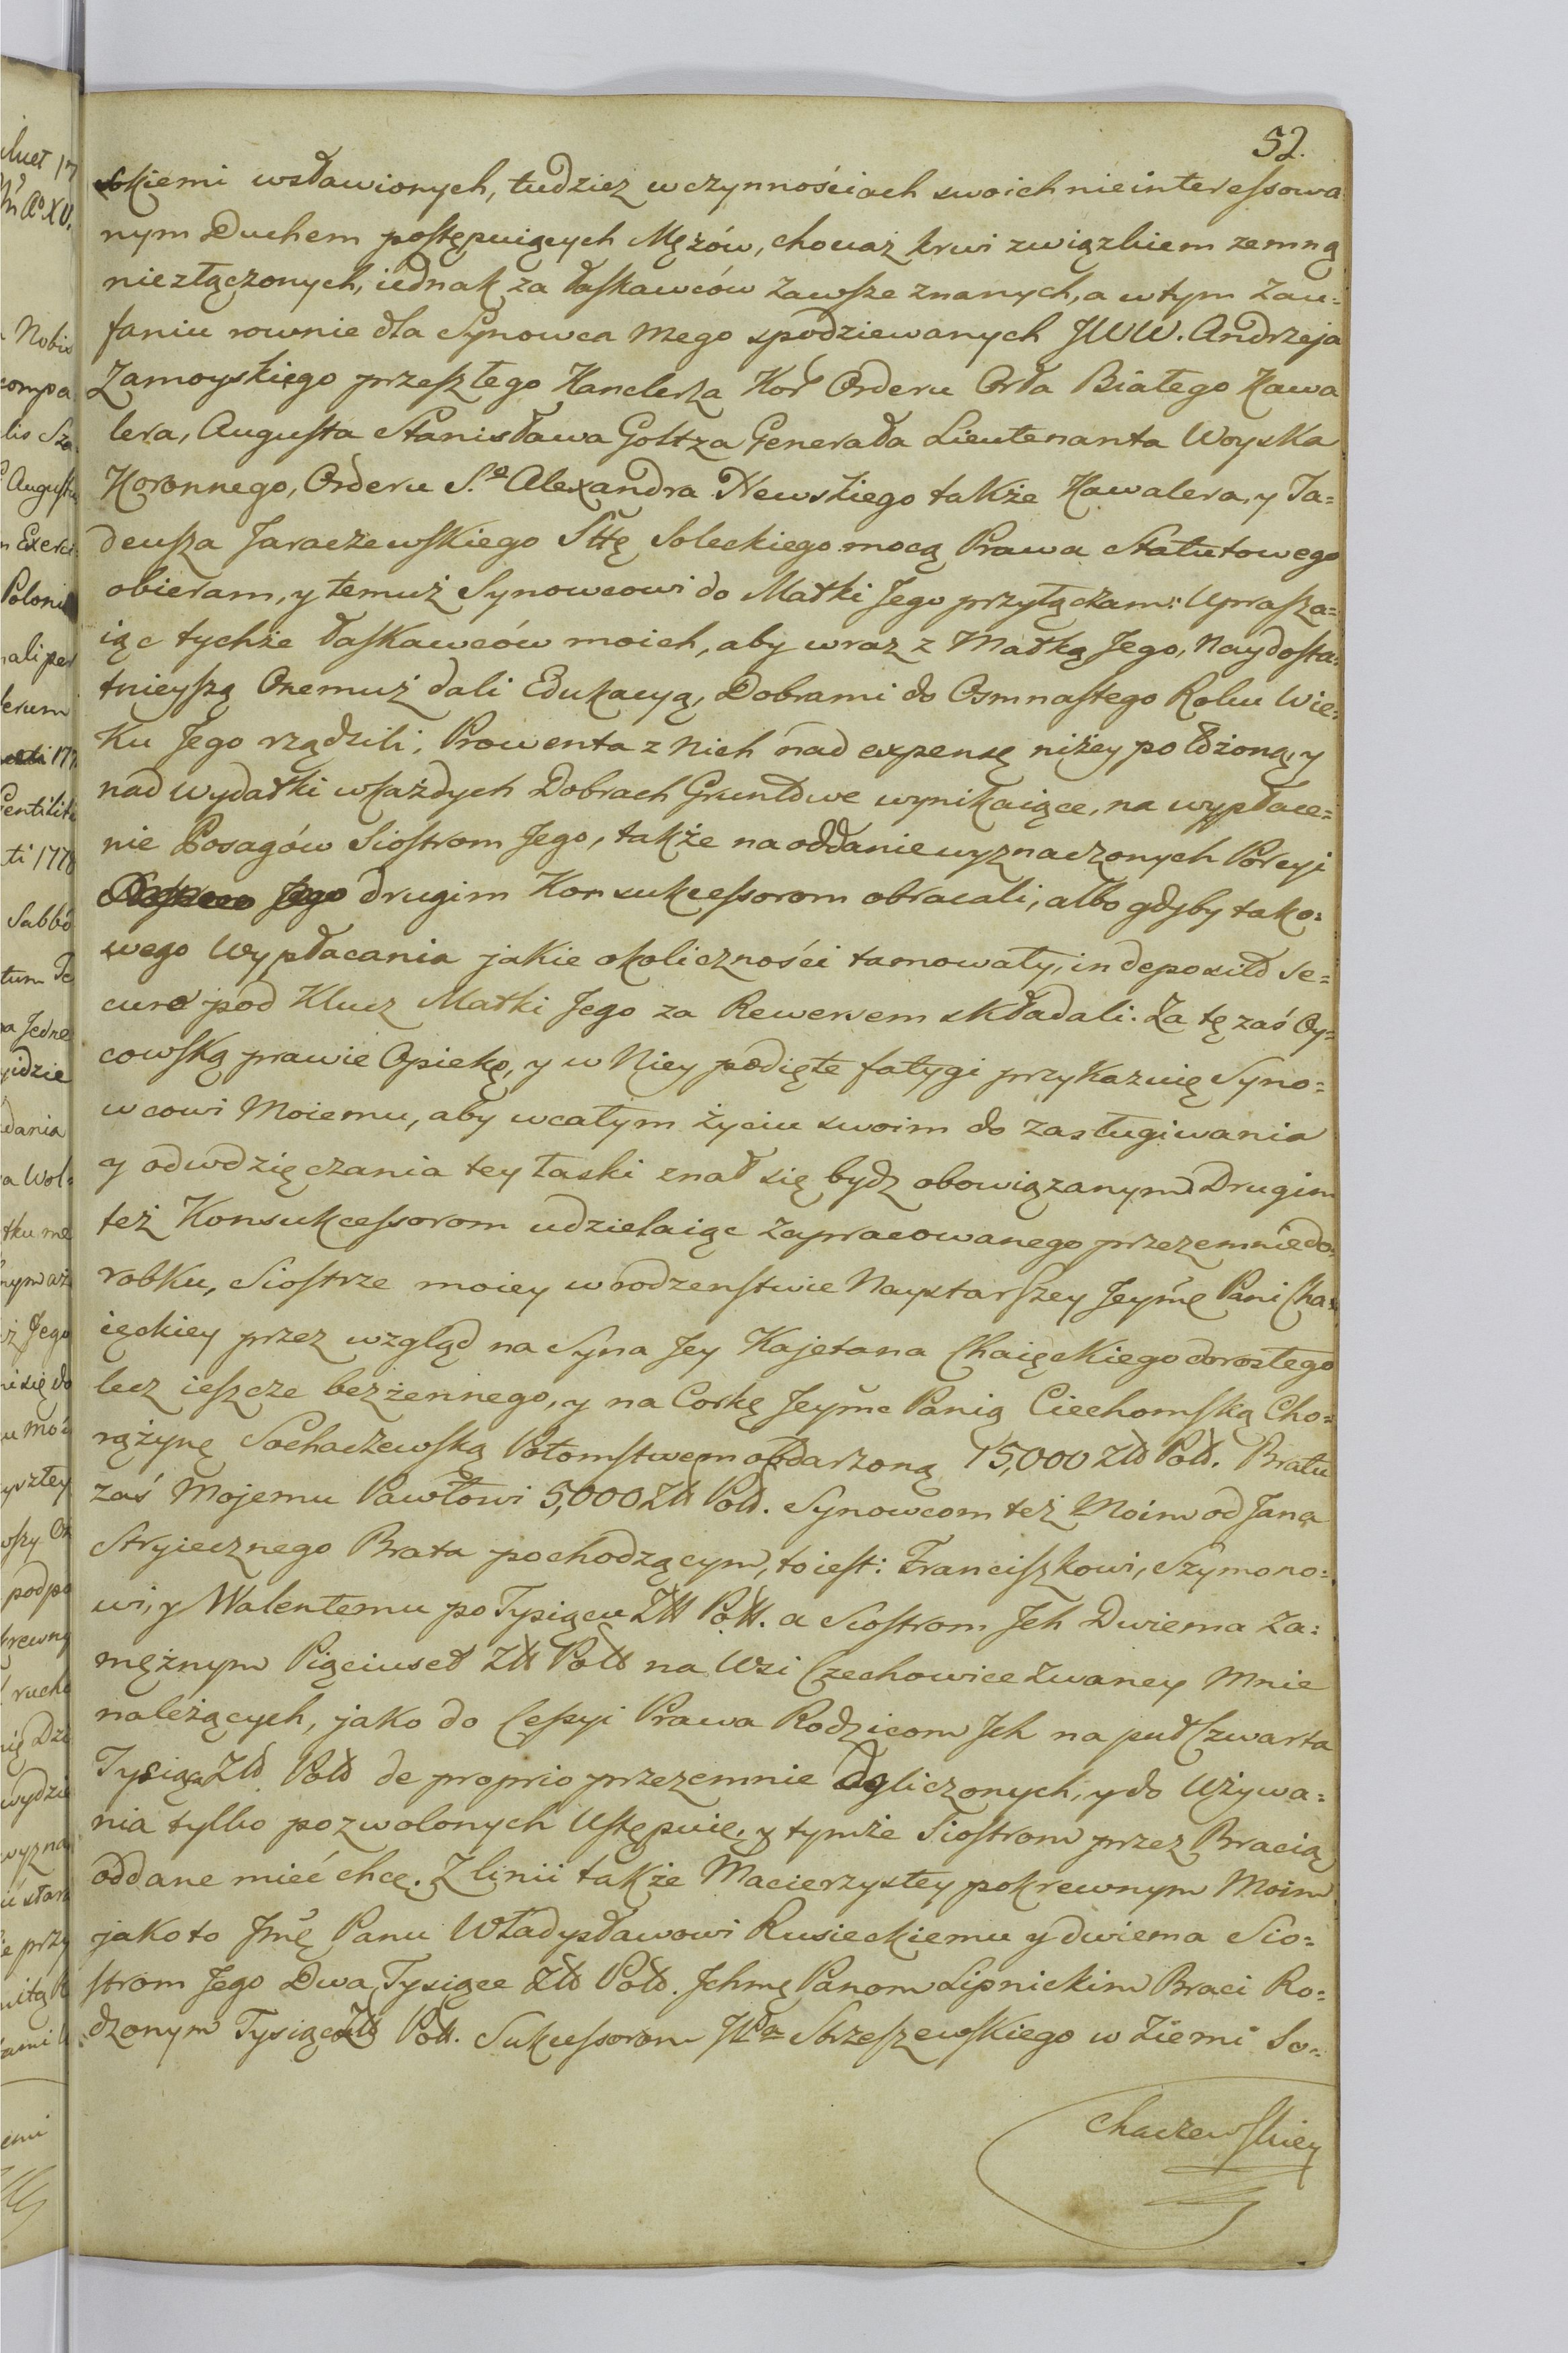 52.
skiemi wsławionych, tudziez w czynnościach swoich nieinteressowa
nym Duchem postępuiących Mężów, chociaż krwi związkiem zemną
niezłączonych, iednak za łaskawców zawsze znanych, a w tym Zau=
faniu rownie dla Synowca mego spodziewanych JWW. Andrzeja
Zamoyskiego przeszłego Kanclerza Kor Orderu Orła Białego Kawa
lera, Augusta Stanisława Goltza Generała Lieutenanta Woyska
Koronnego, Orderu S.o Alexandra Newskiego także Kawalera, y Ta=
deusza Jaraczewskiego Sttę Soleckiego mocą Prawa Statutowego
obieram, y temuż Synowcowi do Matki Jego przyłączam: Uprasza=
iąc tychże łaskawców moich, aby wraz z Matką Jego, Naydosta=
tnieyszą Onemuż dali Edukacyą, Dobrami do Osmnastego Roku Wie=
Ku Jego rządzili; Prowenta z Nich nad expensę niżey położoną, y
nad wydatki w każdych Dobrach Gruntowe wynikaiące, na wypłace=
nie Posagów Siostrom Jego, także na oddanie wyznaczonych Porcyi
Jego drugim Konsukcessorom obracali, albo gdyby tako=
wego Wypłacania jakie okoliczności tamowały, in deposito se=
curo pod Klucz Matki Jego za Rewersem składali. Za tę zaś Oy=
cowską prawie Opiekę, y w Niey podięte fatygi przykazuię Syno=
wcowi Moiemu, aby wcałym życiu swoim do zasługiwania
y odwdzięczania tey łaski znał się bydz obowiązanym. Drugim
też Konsukcessorom udzielaiąc zapracowanego przezemnie do=
robku, Siostrze moiey w rodzenstwie Naystarszey Jeymę Pani Cha=
ięckiey przez wzgląd na Syna Jey Kajetana Chaięckiego dorosłego
lecz ieszcze bezżennego, y na Corkę Jeymę Panią Ciechomską Cho=
rążynę Sochaczewską Potomstwem obdarzoną 15,000 Złł Poł. Bratu
zaś Mojemu Pawłowi 5,000 Złł Poł. Synowcom też Moim od Jana
Stryiecznego Brata pochodzącym, to iest: Franciszkowi, Szymono=
wi, y Walentemu po Tysiącu Złł Poł. a Siostrom Jch Dwiema Za=
mężnym Pięciuset Złł Poł na Wsi Czechowice Zwaney Mnie
należących, jako do Cessyi Prawa Rodzicom Jch na puł Czwarta
Tysiąca Złł Poł de proprio przezemnie doliczonych, y do Używa=
nia tylko pozwolonych Ustępuię, y tymże Siostrom przez Bracią
oddane mieć chcę. Z linii także Macierzystey pokrewnym Moim
jako to Jmę Panu Władysławowi Rusieckiemu y dwiema Sio=
strom Jego Dwa Tysiące Złł Poł. Jchmę Panom Lipnickim Braci Ro=
dzonym Tysiąc Złł Poł. Sukcessorom Strzeszewskiego w Ziemi So=
chaczewskiey